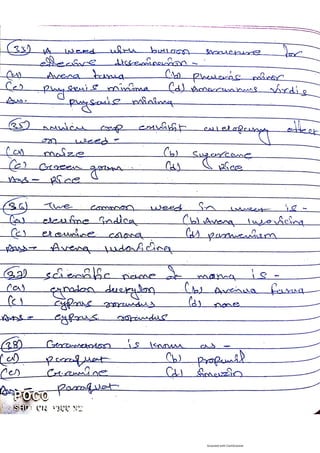 (33) A weed with balloon structure for
effective dissemination -
(a) Avena fatua (b) phalaris minor
(c) physalis minima (d) Amaranthus virdis
Ans. physalis minima
(35) which crop exhibit allelopathy effect
on weed -
(a) maize (b) sugarcane
(c) Green gram (d) Rice
Ans - Rice
(36) The common weed in wheat is -
(a) eleusine indica (b) Avena ludoviciana
(c) eleusine (d) parthenium
Ans - Avena ludoviciana
(37) scientific name of motha is -
(a) cynodon dactylon (b) Avena fatua
(c) cyprus rotundus (d) none
Ans - cyprus rotundus
(38) Gramoxon is known as -
(a) paraquat (b) propanil
(c) (d) Simazin
Ans - paraquat
POCO
SHOT ON POCO M2
Scanned with CamScanner